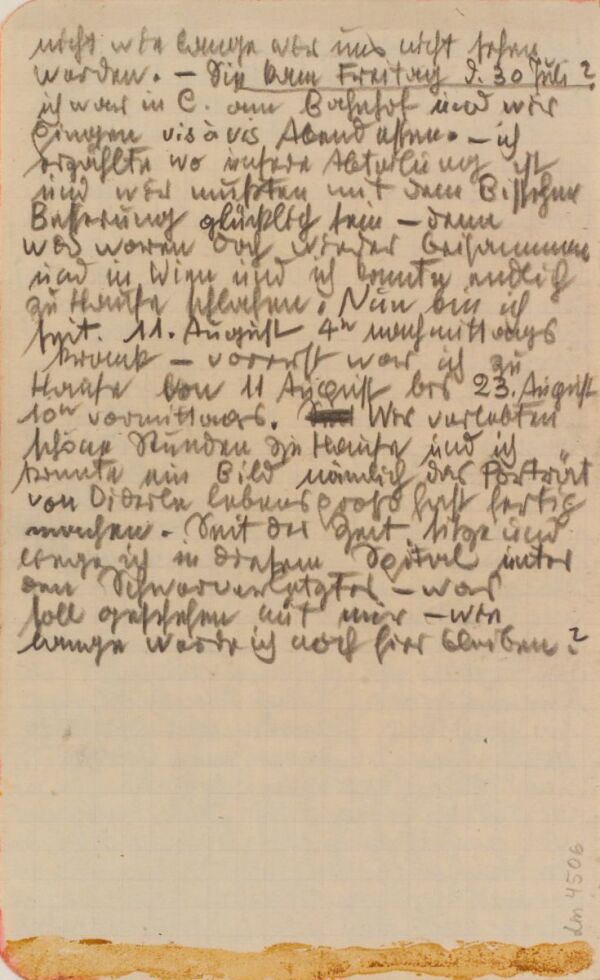 nicht wie lange wir uns nicht sehen
werden. – Sie kam Freitag d. 30 Juli?
ich war in C. am Bahnhof und wir
gingen vis à vis Abendessen. – ich
erzählte wo unsere Abteilung ist
und wir mußten mit dem Bisschen
Besserung glücklich sein – denn
wir waren doch wieder beisammen
und in Wien und ich konnte endlich
zu Hause schlafen. Nun bin ich
seit. 11. August 4h nachmittags
krank – vorerst war ich zu
Hause von 11 August bis 23. August
10h vormittags. Wir verlebten
schöne Stunden zu Hause und ich
konnte ein Bild nämlich das Porträt
von Diderle lebensgroß fast fertig
machen. – Seit der Zeit sitze und
liege ich in diesem Spital unter
den Schwerverletzten – was
soll geschehen mit mir – wie
lange werde ich noch hier bleiben?
LM 4506